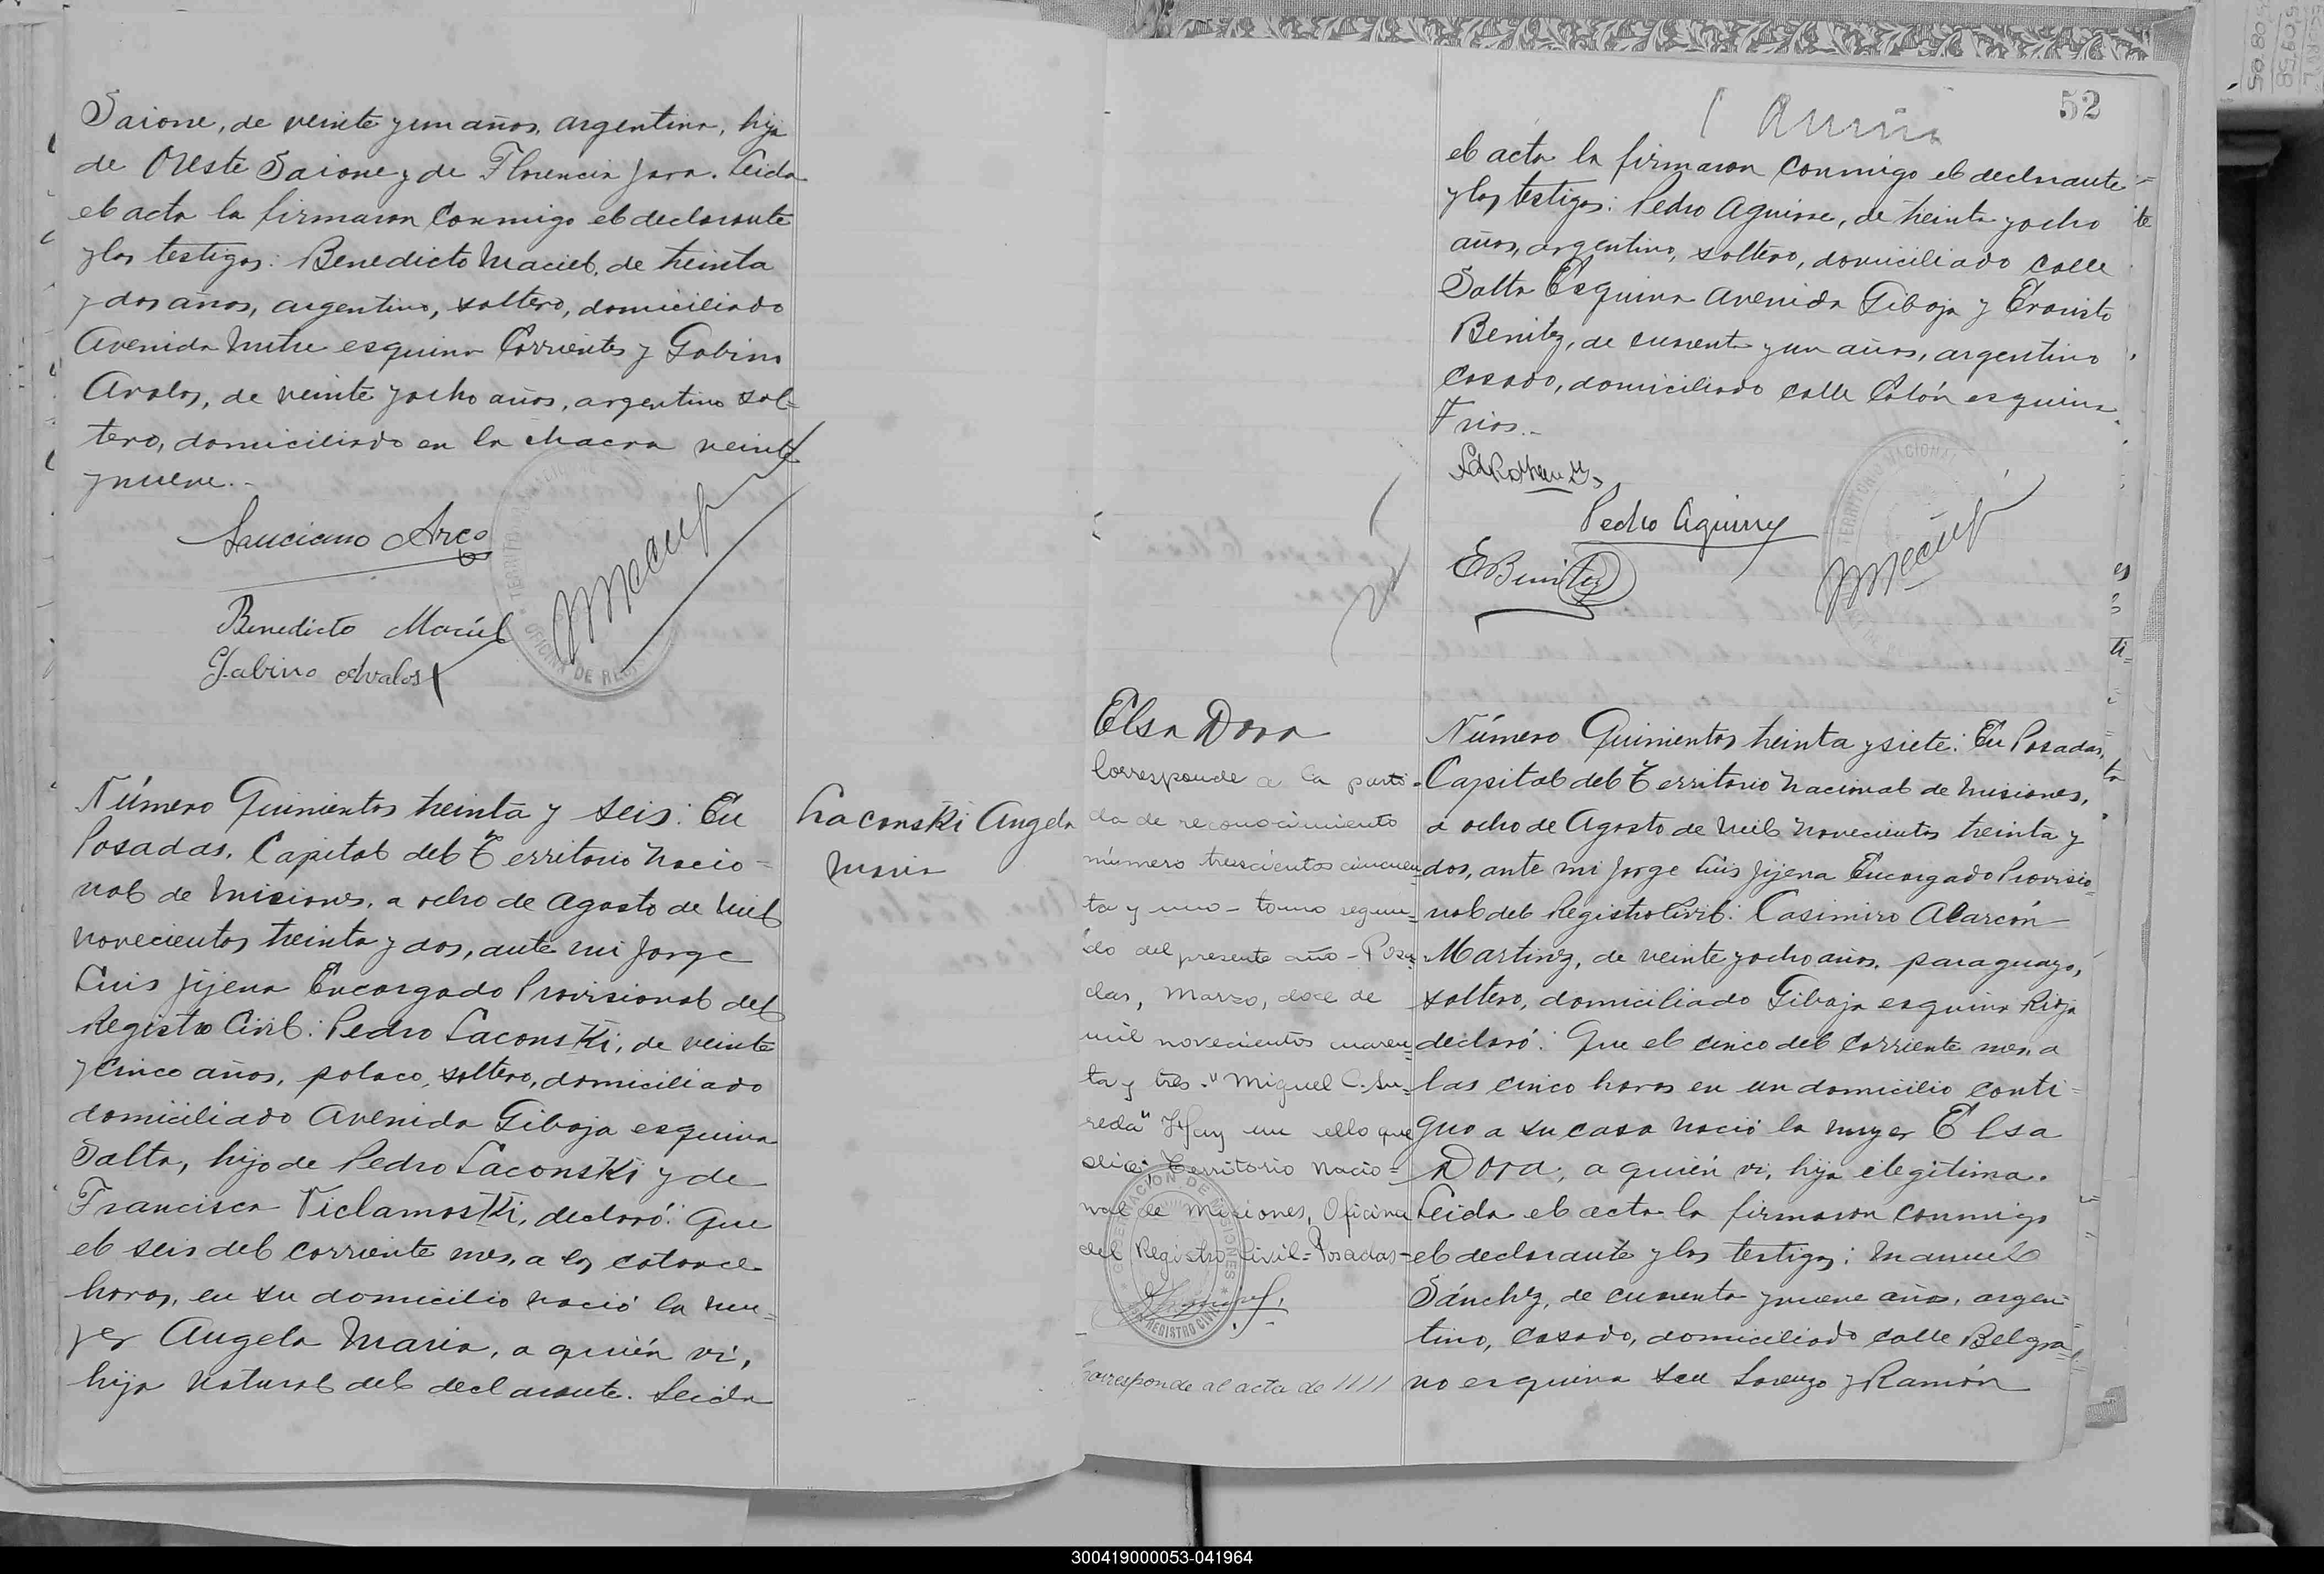 Saione, de veinte y un años, argentina, hija
de Oreste Saione y de Florencia Jara. Leida
el acta la firmaron conmigo el declarante
y los testigos: Benedicto Maciel, de treinta
y dos años, argentino, soltero, domiciliado
Avenida Mitre esquina Corrientes y Gabino
Avalos, de veinte y ocho años, argentino sol-
tero, domiciliado en la chacra veinte
y nueve.-
Luciano Arce
Benedicto Maciel
Gabino Avalos
Número Quinientos treinta y seis: En
Posadas, Capital del Territorio Nacio-
nal de Misiones, a ocho de Agosto de mil
novecientos treinta y dos, ante mi Jorge
Luis Jijena Encargado Provisional del
Registro Civil: Pedro Laconski, de veinte
y cinco años, polaco, soltero, domiciliado
domiciliado Avenida Gibaja esquina
Salta, hijo de Pedro Laconski y de
Francisca Viclamoski, declaró: Que
el seis del corriente mes, a las catorce
horas, en su domicilio nació la mu-
jer Angela Maria, a quién vi,
hija natural del declarante. Leida
Laconski Angela
Maria
52
el acta la firmaron conmigo el declarante
y los testigos: Pedro Aguirre, de treinta y ocho
años, argentino, soltero, domiciliado calle
Salta Esquina Avenida Gibaja y Evaristo
Benitez, de cuarenta y un años, argentino
casado, domiciliado calle Colón esquina
Frios.-
Pedro Aguirre
E Benitez
TERRITORIO NACIONAL
Elsa Dora
Corresponde a la parti-
da de reconocimiento
número trescientos cincuen-
ta y uno - tomo segun-
do del presente año - Posa-
das, Marzo, doce de
mil novecientos cuaren-
ta y tres. "Miguel C. Su-
reda" Hay un sello que
dice: Territorio Nacio-
nal de Misiones, Oficina
del Registro Civil - Posadas -
GOBERNACION DE MISIONES
REGISTRO CIVIL
Corresponde al acta de 1111
Número Quinientos treinta y siete: En Posadas,
Capital del Territorio Nacional de Misiones,
a ocho de Agosto de mil novecientos treinta y
dos, ante mi Jorge Luis Jijena Encargado Provisio-
nal del Registro Civil: Casimiro Alarcón
Martinez, de veinte y ocho años, paraguayo,
soltero, domiciliado Gibaja esquina Rioja
declaró: Que el cinco del corriente mes, a
las cinco horas en un domicilio conti-
guo a su casa nació la mujer Elsa
Dora, a quién vi, hija ilegitima.
Leida el acta la firmaron conmigo
el declarante y los testigos: Manuel
Sánchez, de cuarenta y nueve años, argen-
tino, casado, domiciliado calle Belgra-
no esquina San Lorenzo y Ramón
300419000053-041964